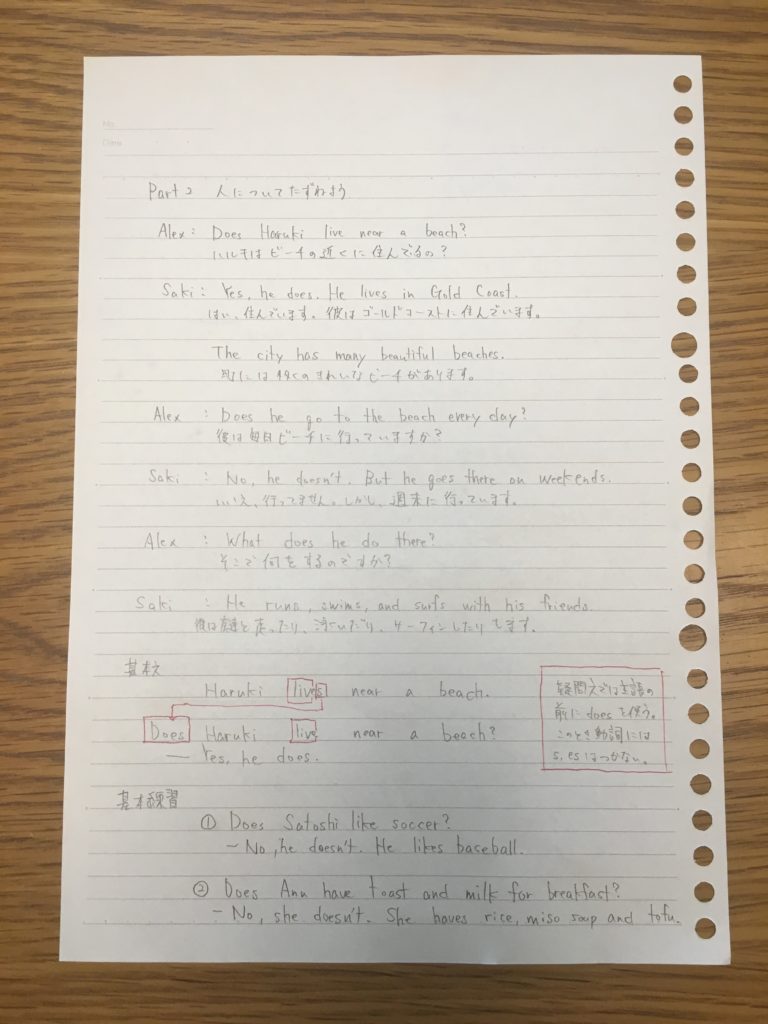 No.
Date
Part 2 人についてたずねよう
Alex : Does Haruki live near a beach?
ハルキはビーチの近くに住んでるの?
Saki : Yes, he does. He lives in Gold Coast.
はい、住んでいます。彼はゴールドコーストに住んでいます。
The city has many beautiful beaches.
町には多くのきれいなビーチがあります。
Alex : Does he go to the beach every day?
彼は毎日ビーチに行っていますか?
Saki : No, he doesn't. But he goes there on weekends.
いいえ、行ってません。しかし、週末に行っています。
Alex : What does he do there?
そこで何をするのですか?
Saki : He runs, swims, and surfs with his friends.
彼は友達と走ったり、泳いだり、サーフィンしたりします。
基本文
Haruki lives near a beach.
Does Haruki live near a beach?
— Yes, he does.
疑問文では主語の
前にdoesを使う。
このとき動詞には
s, esはつかない。
基本練習
① Does Satoshi like soccer?
— No, he doesn't. He likes baseball.
② Does Ann have toast and milk for breakfast?
— No, she doesn't. She haves rice, miso soup and tofu.